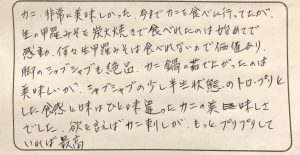 カニ、非常に美味しかった。今までカニを食べに行ってたが、
生の甲羅みそ炭火焼きで食べれたのは始めてで
感動。何々甲羅みそは食べれないので価値あり。
脚のシャブシャブも絶品、カニ鍋の茹で上がったのは
美味しいが、シャブシャブの少し半生状態のトロープリと
した食感と味はひと味違ったカニの美味しさ
でした。欲を言えばカニ刺しが、もっとプリプリして
いれば最高